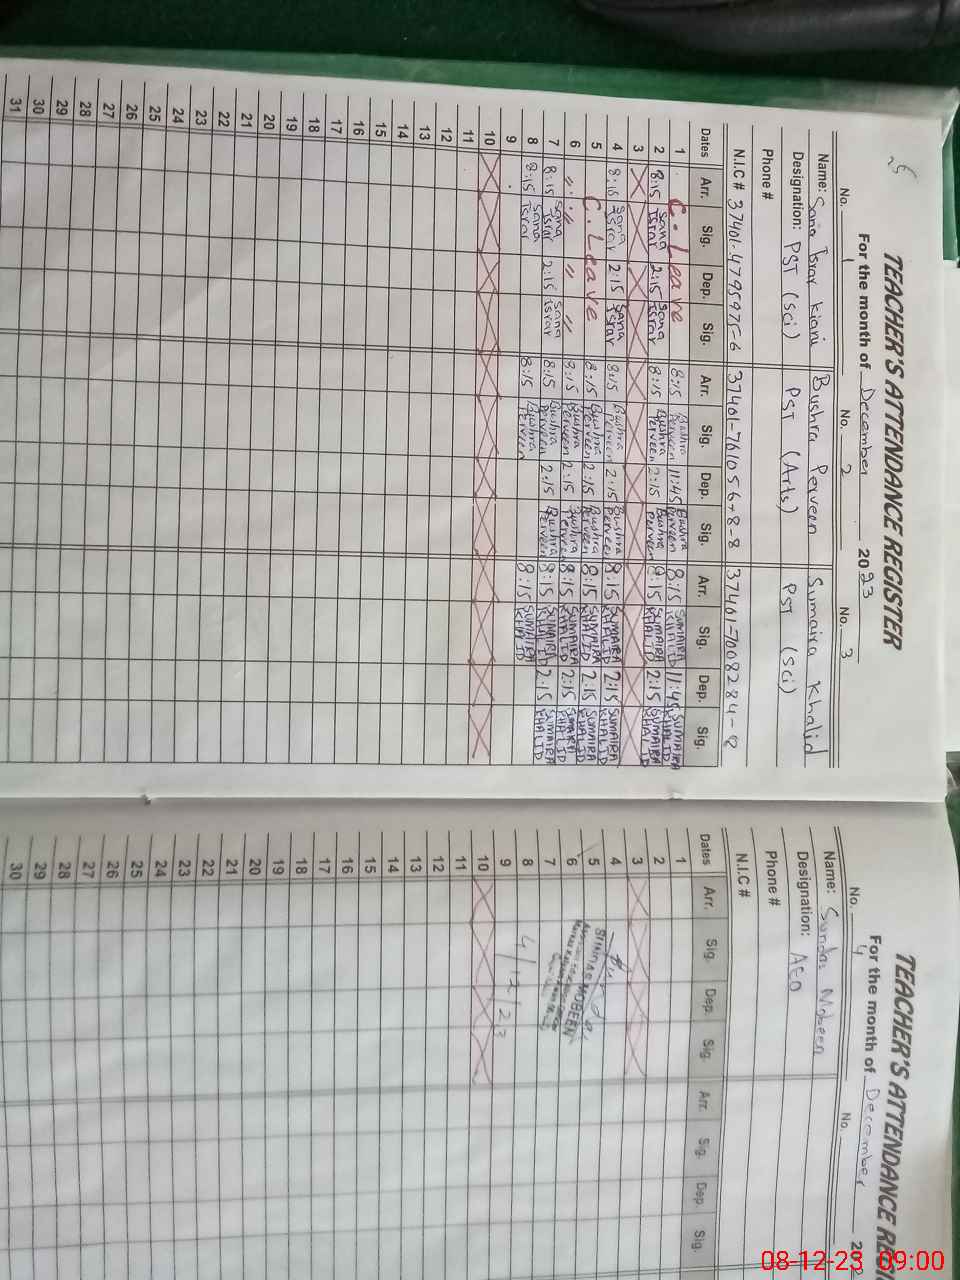 TEACHER'S ATTENDANCE REGISTER
For the month of December 2023
No. 1 No. 2 No. 3
Name: Sana Israr Kiani Bushra Perveen Sumaira Khalid
Designation: PST (Sci) PST (Arts) PST (Sci)
Phone #
N.I.C #
Dates Arr. Sig. Dep. Sig. Arr. Sig. Dep. Sig. Arr. Sig. Dep. Sig.
1 C. Leave 8:15 Bushra Perveen 11:45 Bushra Perveen 8:15 SUMAIRA KHALID 11:45 SUMAIRA KHALID
2 8:15 Sana Israr 2:15 Sana Israr 8:15 Bushra Perveen 2:15 Bushra Perveen 8:15 SUMAIRA KHALID 2:15 SUMAIRA KHALID
3
4 8:15 Sana Israr 2:15 Sana Israr 8:15 Bushra Perveen 2:15 Bushra Perveen 8:15 SUMAIRA KHALID 2:15 SUMAIRA KHALID
5 C. Leave 8:15 Bushra Perveen 2:15 Bushra Perveen 8:15 SUMAIRA KHALID 2:15 SUMAIRA KHALID
6 " " " " 8:15 Bushra Perveen 2:15 Bushra Perveen 8:15 SUMAIRA KHALID 2:15 SUMAIRA KHALID
7 8:15 Sana Israr 2:15 Sana Israr 8:15 Bushra Perveen 2:15 Bushra Perveen 8:15 SUMAIRA KHALID 2:15 SUMAIRA KHALID
8 8:15 Sana Israr 8:15 Bushra Perveen 8:15 SUMAIRA KHALID
9
10
11
12
13
14
15
16
17
18
19
20
21
22
23
24
25
26
27
28
29
30
31
TEACHER'S ATTENDANCE REGI
For the month of December 20
No. 4 No.
Name: Sundas Mobeen
Designation: AEO
Phone #
N.I.C #
Dates Arr. Sig. Dep. Sig. Arr. Sig. Dep. Sig.
1
2
3
4
5 MOBEEN
6
7
8 4/12/23
9
10
11
12
13
14
15
16
17
18
19
20
21
22
23
24
25
26
27
28
29
30
08-12-23 09:00